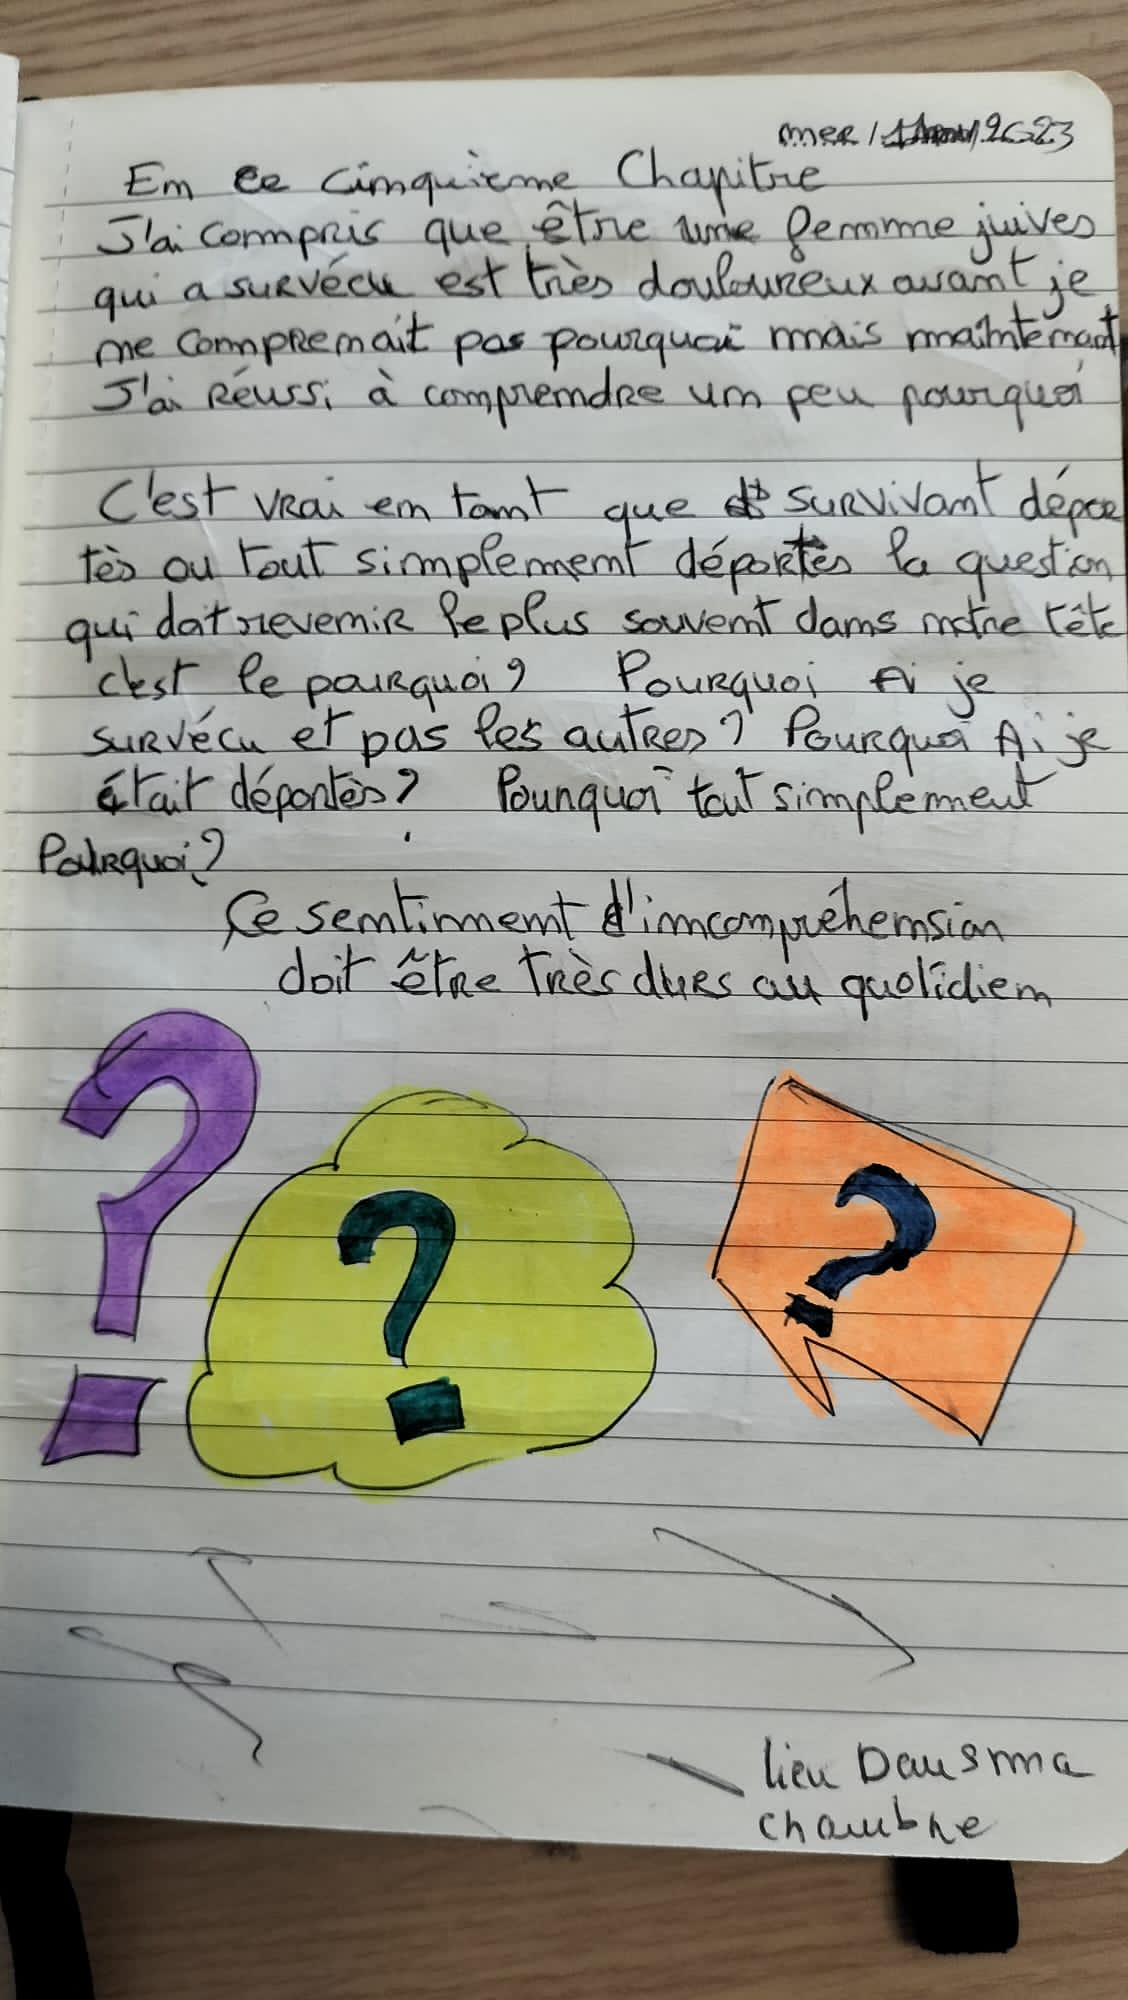 mer / 2023
En ce cinquième Chapitre
J'ai compris que être une femme juives
qui a survécu est très douloureux avant je
ne comprenait pas pourquoi mais maintenant
J'ai réussi à comprendre un peu pourquoi
C'est vrai en tant que survivant dépor
tès ou tout simplement déportès la question
qui doit revenir le plus souvent dans notre tête
c'est le pourquoi? Pourquoi Ai je
survécu et pas les autres? Pourquoi Ai je
était déportès? Pourquoi tout simplement
Pourquoi?
Ce sentinment d'incompréhension
doit être très dures au quotidien
?
?
?
lieu Dans ma
chambre